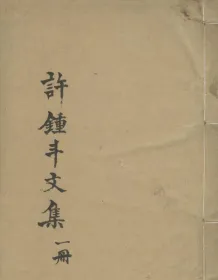 許鍾斗文集
一冊